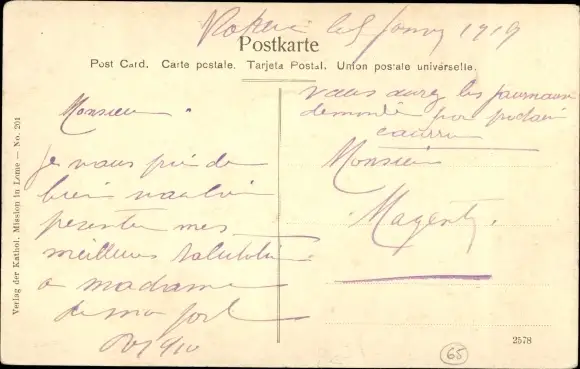 le 5 Janv 1919
Postkarte
Post Card. Carte postale. Tarjeta Postal. Union postale universelle.
vous aurez les journaux
demandé par prochain
courrier
Monsieur
Magenty.
Monsieur.
je vous prie de
bien vouloir
presenter mes
meilleures salutation
a madame
de ma part
Verlag der Kathol. Mission in Lome — No. 201
2578
65